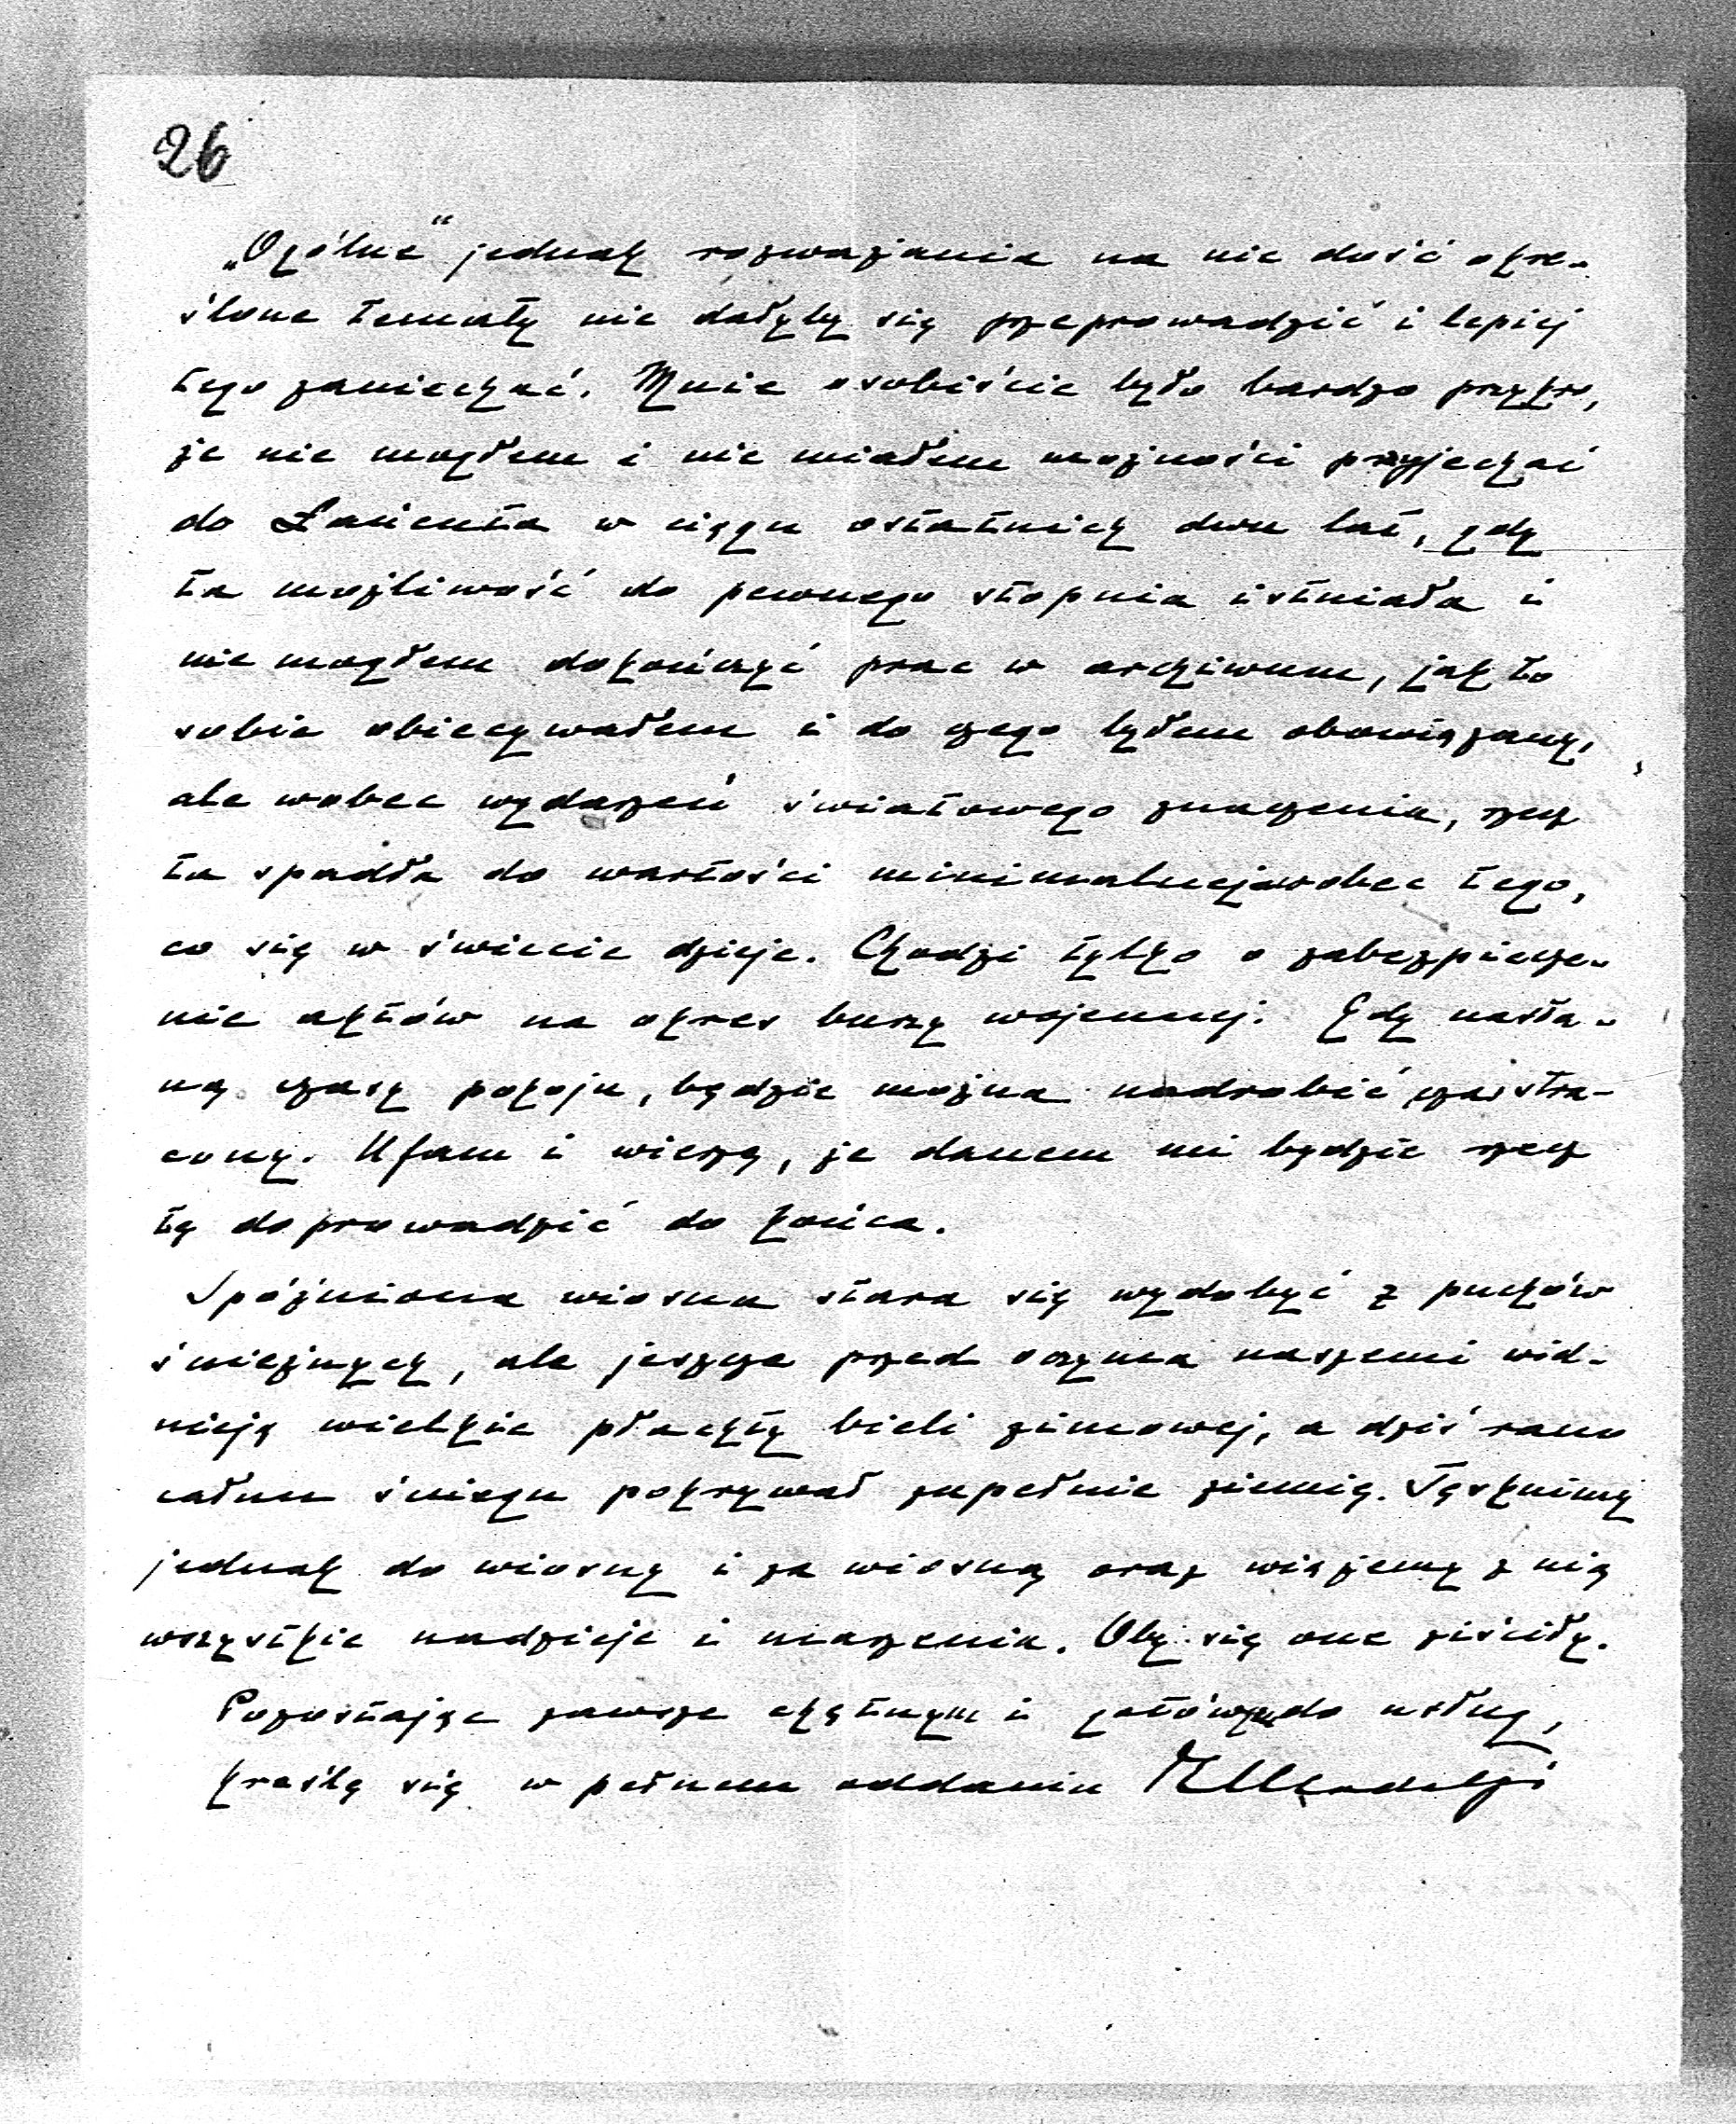 26
„Ogólne" jednak rozważania na nie dość okre-
ślone tematy nie dałyby się przeprowadzić i lepiej
tego zaniechać. Mnie osobiście było bardzo przykro,
że nie mogłem i nie miałem możności przyjechać
do Łańcuta w ciągu ostatnich dwu lat, gdy
ta możliwość do pewnego stopnia istniała i
nie mogłem dokończyć prac w archiwum, jak to
sobie obiecywałem i do czego byłem obowiązany,
ale wobec wydarzeń światowego znaczenia, rzecz
ta spadła do wartości minimalnej wobec tego,
co się w świecie dzieje. Chodzi tylko o zabezpiecze-
nie aktów na okres burzy wojennej. Gdy nasta-
ną czasy pokoju, będzie można nadrobić czas stra-
cony. Ufam i wierzę, że danem mi będzie rzecz
tę doprowadzić do końca.
Spóźniona wiosna stara się wydobyć z puchów
śnieżnych, ale jeszcze przed oczyma naszemi wid-
nieją wielkie płachty bieli zimowej, a dziś rano
całun śniegu pokrywał zupełnie ziemię. Tęsknimy
jednak do wiosny i za wiosną oraz wiążemy z nią
wszystkie nadzieje i marzenia. Oby się one ziściły.
Pozostając zawsze chętnym i gotowym do usług,
kreślę się w pełnem oddaniu